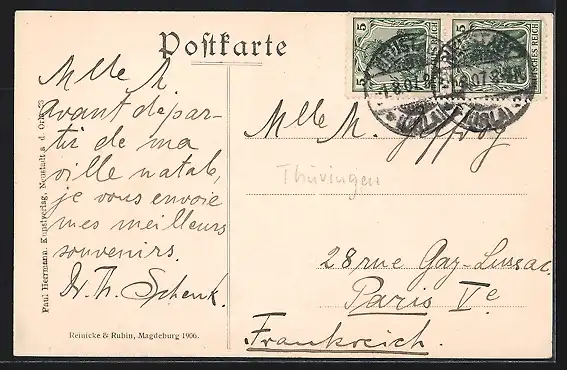 Postkarte
5 5
DEUTSCHES REICH
1.8.07.
(ORLA)
Mlle M
avant dépar-
tir de ma
ville natale,
je vous envoie
mes meilleurs
souvenirs.
Dr. Th. Schenk.
Mlle M.
Thüringen
28 rue Gay-Lussac
Paris Ve
Frankreich.
Paul Herrmann, Kunstverlag, Neustadt a. d. Orla
Reinicke & Rubin, Magdeburg 1906.